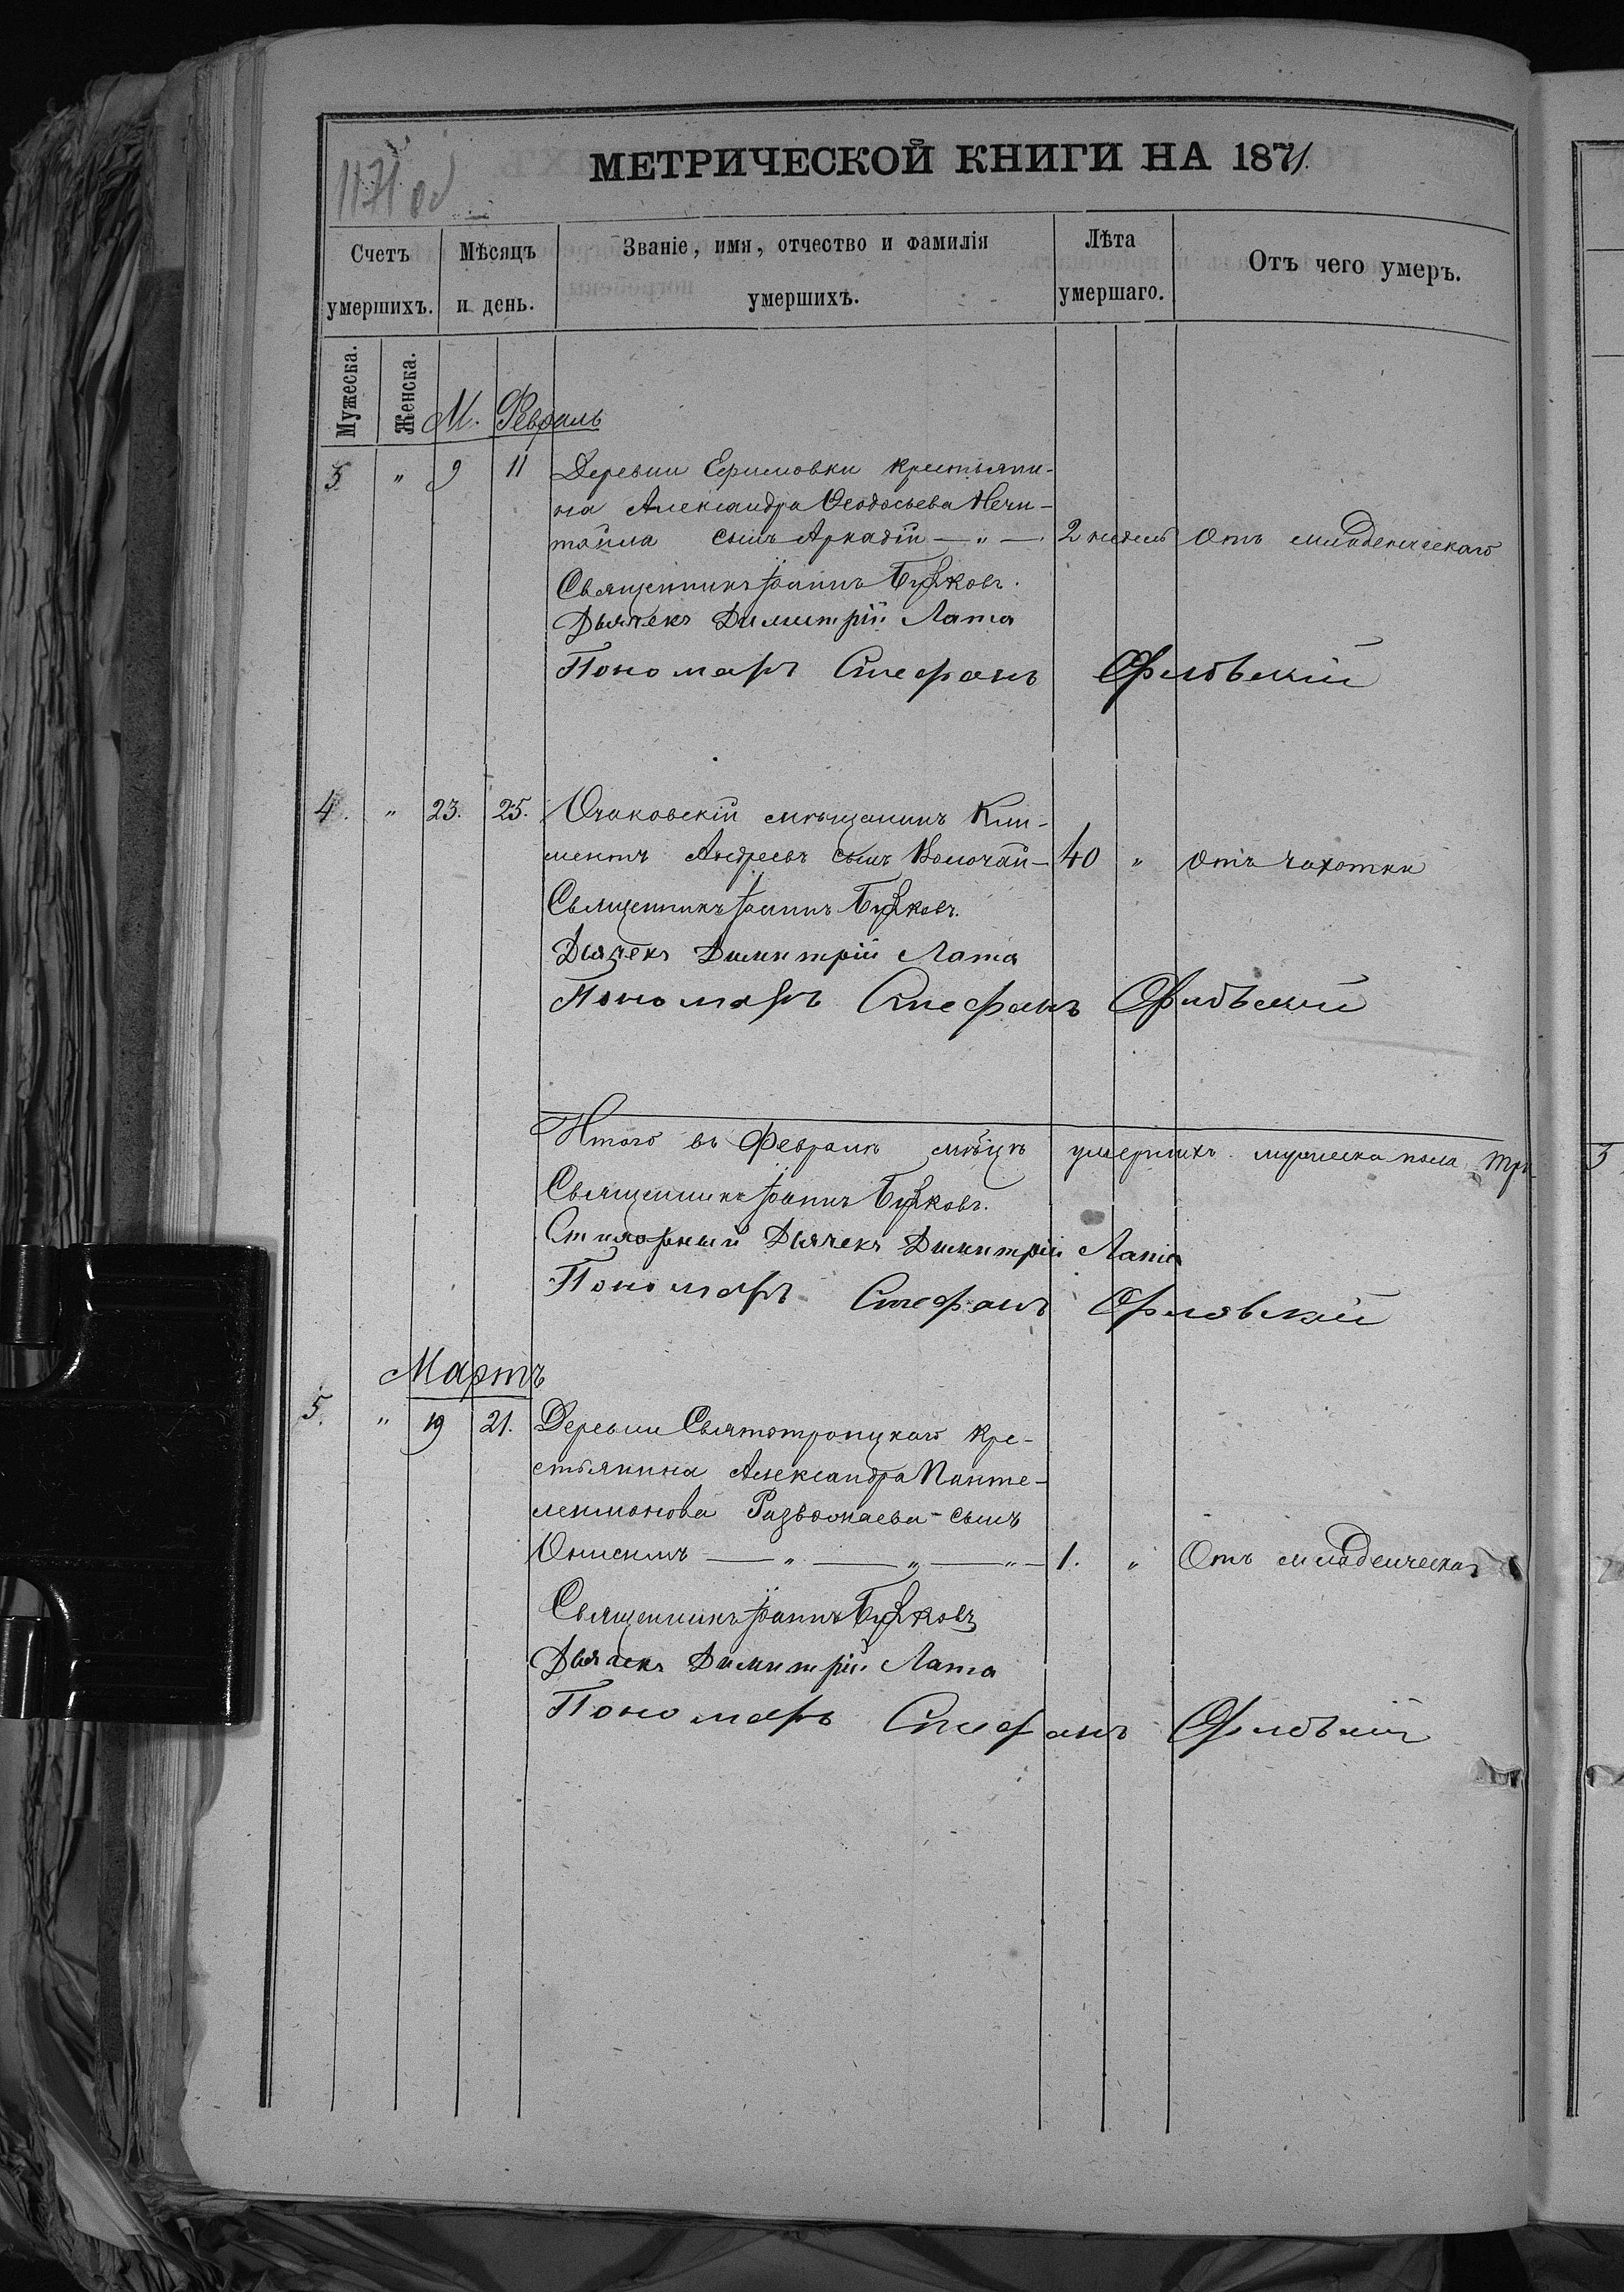 1171 об
МЕТРИЧЕСКОЙ КНИГИ НА 1871.
Счетъ умершихъ. Мѣсяцъ и день. Званіе, имя, отчество и фамилія умершихъ. Лѣта умершаго. Отъ чего умеръ.
Мужеска. Женска. М. Февраль
3 " 9 11 Деревни Ефимовки крестьяни-
на Александра Ѳеодосьева Нечи-
тайла сынъ Аркадій — " — 2 недель Отъ младенческаго
Священникъ Іоаннъ
Дьячекъ Димитрій Лата
Пономарь Стефанъ Орловскій
4. " 23. 25. Очаковскій мѣщанинъ Кли-
ментъ Андреевъ сынъ — 40 " отъ чахотки
Священникъ Іоаннъ
Дьячекъ Димитрій Лата
Пономарь Стефанъ Орловскій
Итого въ Февралѣ мѣцѣ умершихъ мужеска пола три 3
Священникъ Іоаннъ
Стихарный Дьячекъ Димитрій Лата
Пономарь Стефанъ Орловскій
Мартъ
5. " 19 21. Деревни Святотроицкаго Кре-
стьянина Александра Панте-
леимонова сынъ
Онисимъ — " — " — " — 1. " Отъ младенческаг
Священникъ Іоаннъ
Дьячекъ Димитрій Лата
Пономарь Стефанъ Орловскій